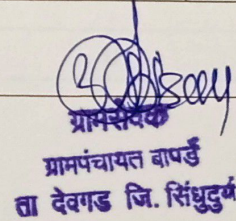 ग्रामसेवक
ग्रामपंचायत बापर्डे
ता देवगड जि. सिंधुदुर्ग